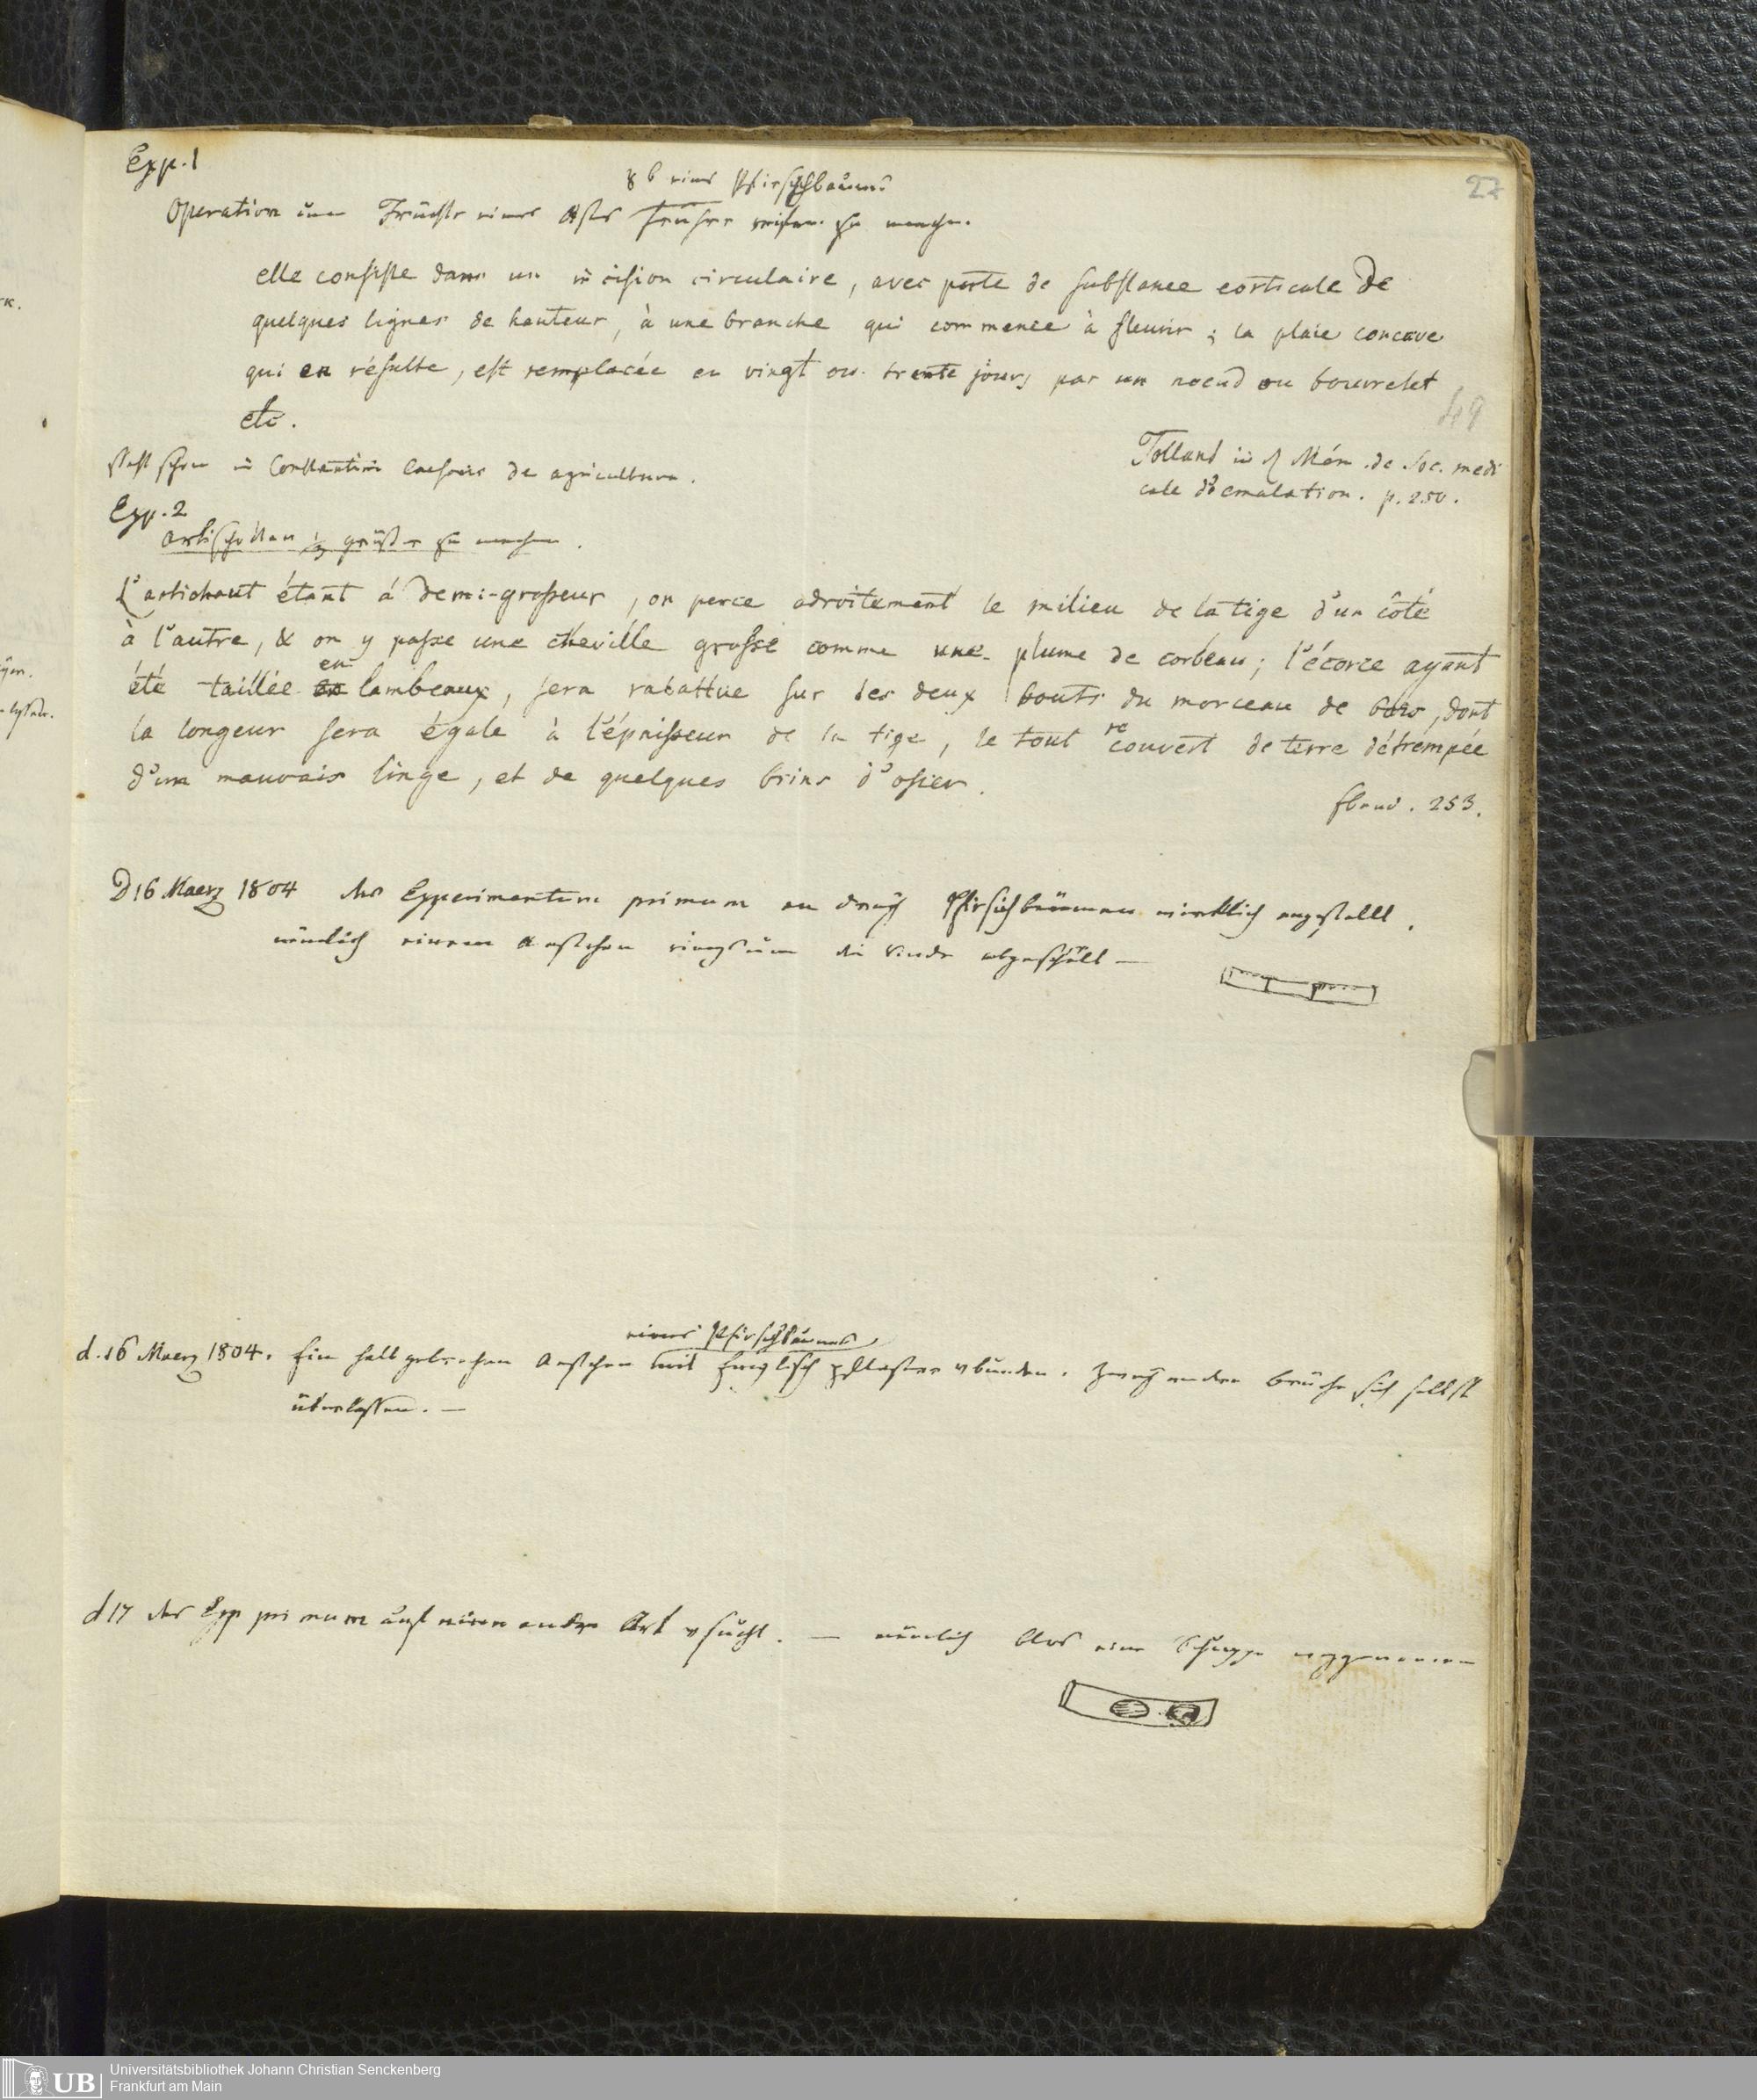 Exp. 1
27
z b eines Pfirschbaums
Operation um Früchte eines Asts früher reifen zu machen.
elle consiste dans un incision circulaire, avec perte de substance corticale de
quelques lignes de hauteur, à une branche qui commence à fleurir; la plaie concave
qui en résulte, est remplacée en vingt ou trente jours par un noeud ou bourrelet
etc.
49
steht schon in Constantini Caesaris de agricultura.
Tolland in Mém. de Soc. medi
cale d'emulation. p. 250.
Exp. 2
Artischokken größer zu machen.
L'artichaut étant á demi-grosseur, on perce adroitement le milieu de la tige d'un côté
à l'autre, & on y passe une cheville grosse comme une plume de corbeau; l'écorce ayant
en
été taillée en lambeaux, sera rabattue sur les deux bouts du morceau de bois, dont
la longeur sera égale à l'épaisseur de la tige, le tout recouvert de terre détrempée
d'un mauvais linge, et de quelques brins d'osier.
Ebend. 253.
D 16 Maerz 1804 das Experimentum primum an dreÿ Pfirsichbäumen wircklich angestellt,
nämlich einem Aestchen ringsum die Rinde abgeschält —
eines Pfirschbaumes
d. 16 Maerz 1804. Ein halb gebrochen Aestchen mit Englisch pflaster vbunden. Zweÿ andre brüche sich selbst
überlassen. —
d 17 das Exp primum auf eine andre Art vsucht. — nämlich blos eine Schuppe weggenommen
UB
Universitätsbibliothek Johann Christian Senckenberg
Frankfurt am Main